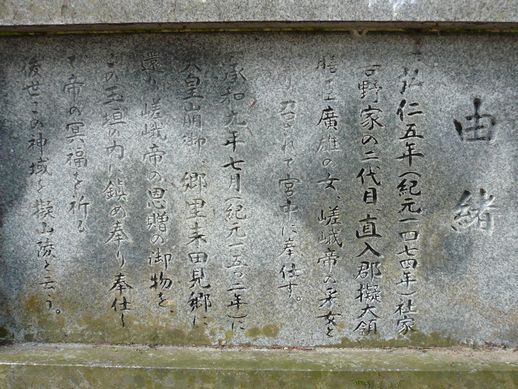 由緒
弘仁五年(紀元一四七四年)社家
宮野家の二代目直入郡擬大領
膳臣廣雄の女、嵯峨帝の采女と
召されて宮中に奉仕す。
承和九年七月(紀元一五〇二年)に
天皇崩御、郷里朱田見郷に
還り嵯峨帝の恩贈の御物を、
この玉垣の内に鎮め奉り奉仕し
て帝の冥福を祈る
後世この神域を擬山陵と云う。